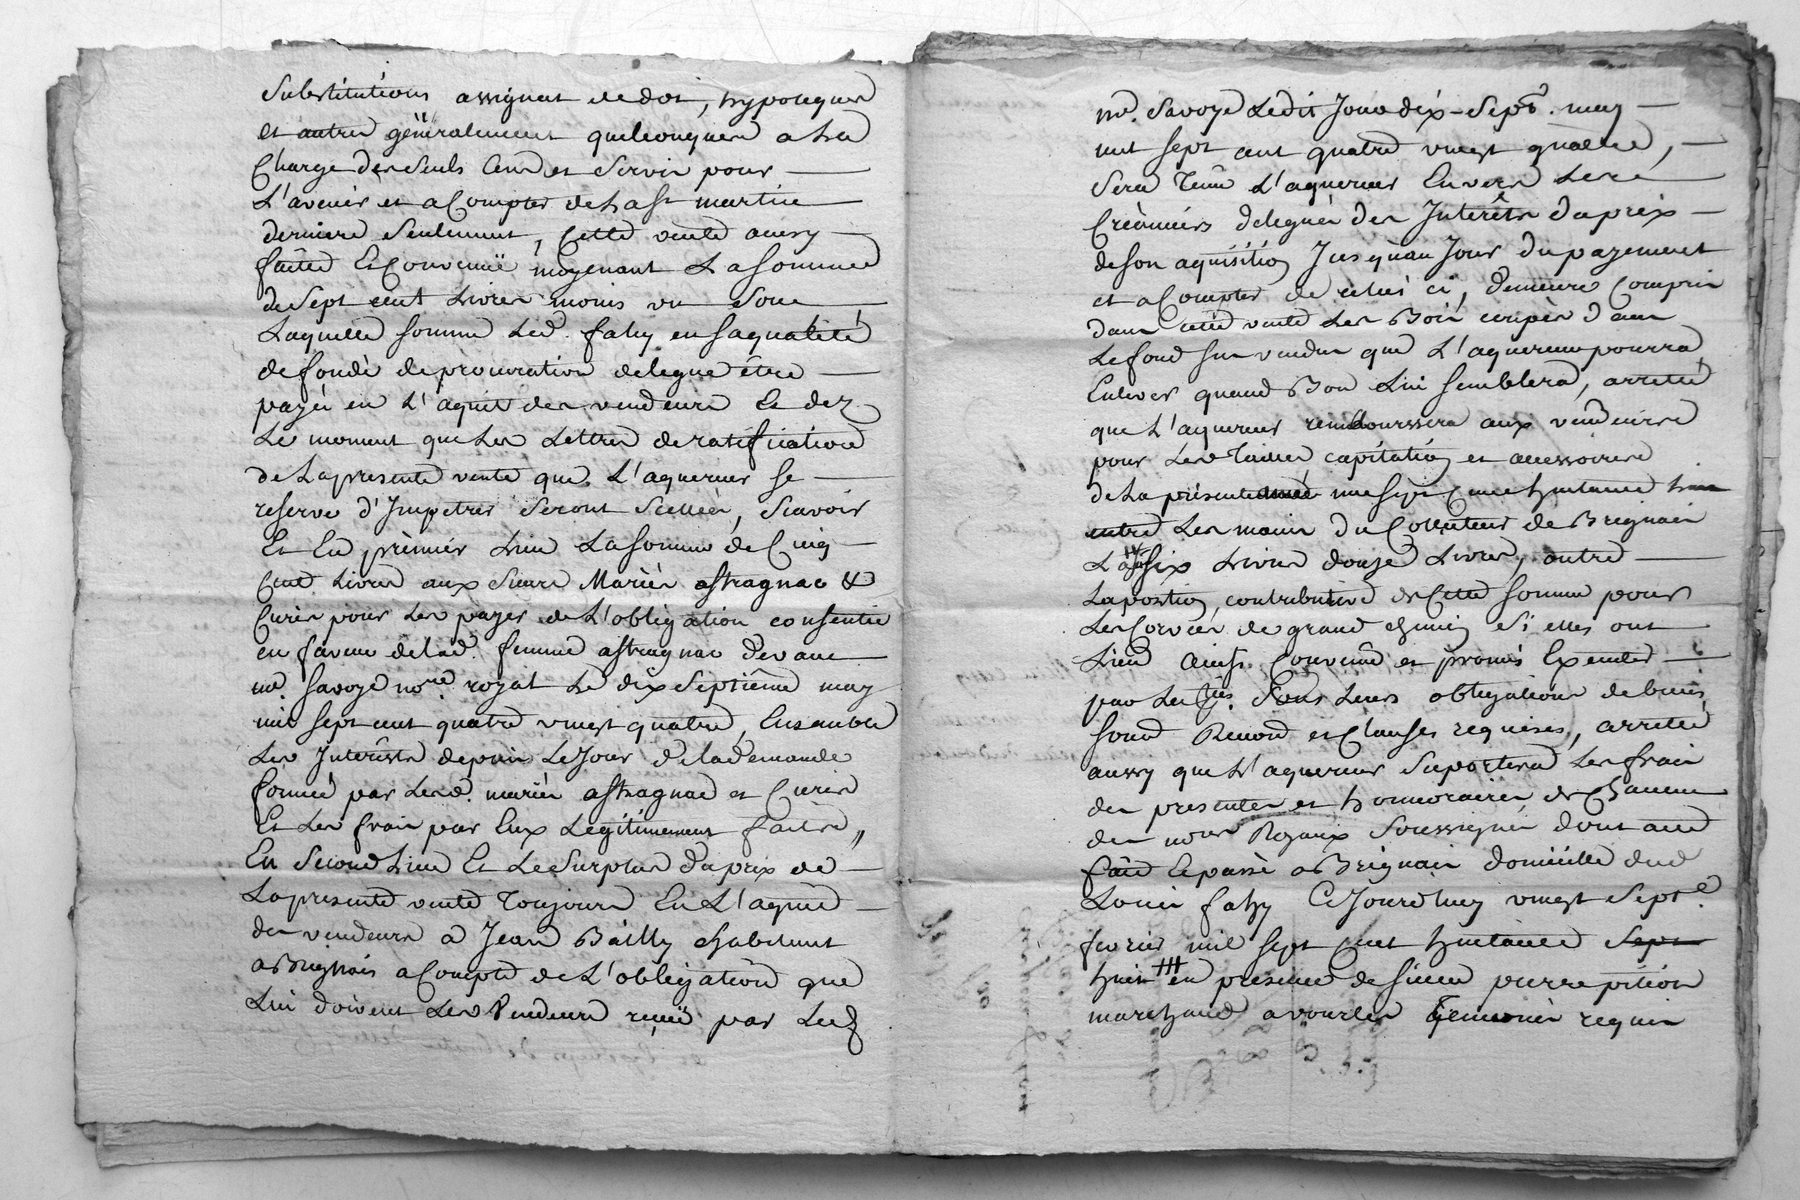 Substitutions assignat de dot, hypoteques
et autres généralement quelconques a La
Charge des seuls Cens et Servis pour
L'avenir et a Compter de La St martin
derniere Seulement, Cette vente aussy
faitte Et Convenuë moyenant La somme
de Sept cent Livres moins un Sou
Laquelle somme Led. fahy en sa qualité
de fondé de procuration delegue être
payée en L'aquit des vendeurs Et dez
Le moment que Les Lettres de ratification
de La presente vente que L'aquereur se
reserve d'Impetrer Seront Scellées, Scavoir
Et En prémier Lieu La somme de Cinq
Cent Livres aux Sieurs Mariés astragnac &
Curis pour Les payer de L'obligation consentie
en faveur de lad. femme astragnac devant
me. Savoye nore. royal Le dix Septième may
mil sept cent quatre vingt quatre, Ensemble
Les Interêsts depuis Le Jour de la demande
formée par Lesd. mariés astragnac et Curis
Et Les frais par Eux Legitimement faits,,
En Second Lieu Et Le Surplus du prix de
La presente vente Toujours En L'aquit
des vendeurs a Jean Bailly habitant
a Brignais a Compte de L'obligation que
Lui doivent Les Vendeurs reçuë par Led
me. Savoye Ledit Jour dix-Septe. may
mil sept cent quatre vingt quatre,
Sera Tenu L'aquereur Envers Les
Créanciers delegués des Interêts du prix
de son aquisition Jusqu'au Jour du payement
et a Compter de celui ci, demeure Compris
dans cette vente Les Bois coupés dans
Le fond sus vendu que L'aquereur pourra
Enlever quand Bon Lui semblera, arretté
que L'aquereur remboursera aux vendeurs
pour Les Tailles capitation et accessoires
de La présente année mil sept Cent huitante huit
entre Les mains du Collecteur de Brignais
La six Livres douze Livres, outre
La portion contributive de Cette somme pour
Les Corvées de grand chemin Si elles ont
Lieu Ainsy Convenu et promis Executer
par Les ties. Sous Leurs obligations de biens
soumis Renon et Clauses requises, arretté
aussy que L'aquereur Suportera Les frais
des presentes et honnoraires de Chacun
des nores Royaux Soussignés dont acte
fait Et passé a Brignais domicille dud
Louis fahy Ce Jourd'huy vingt Septe.
fevrier mil sept Cent huitante Sept
huit en presence de sieur pierre pition
marchand a vourles Temoins requis